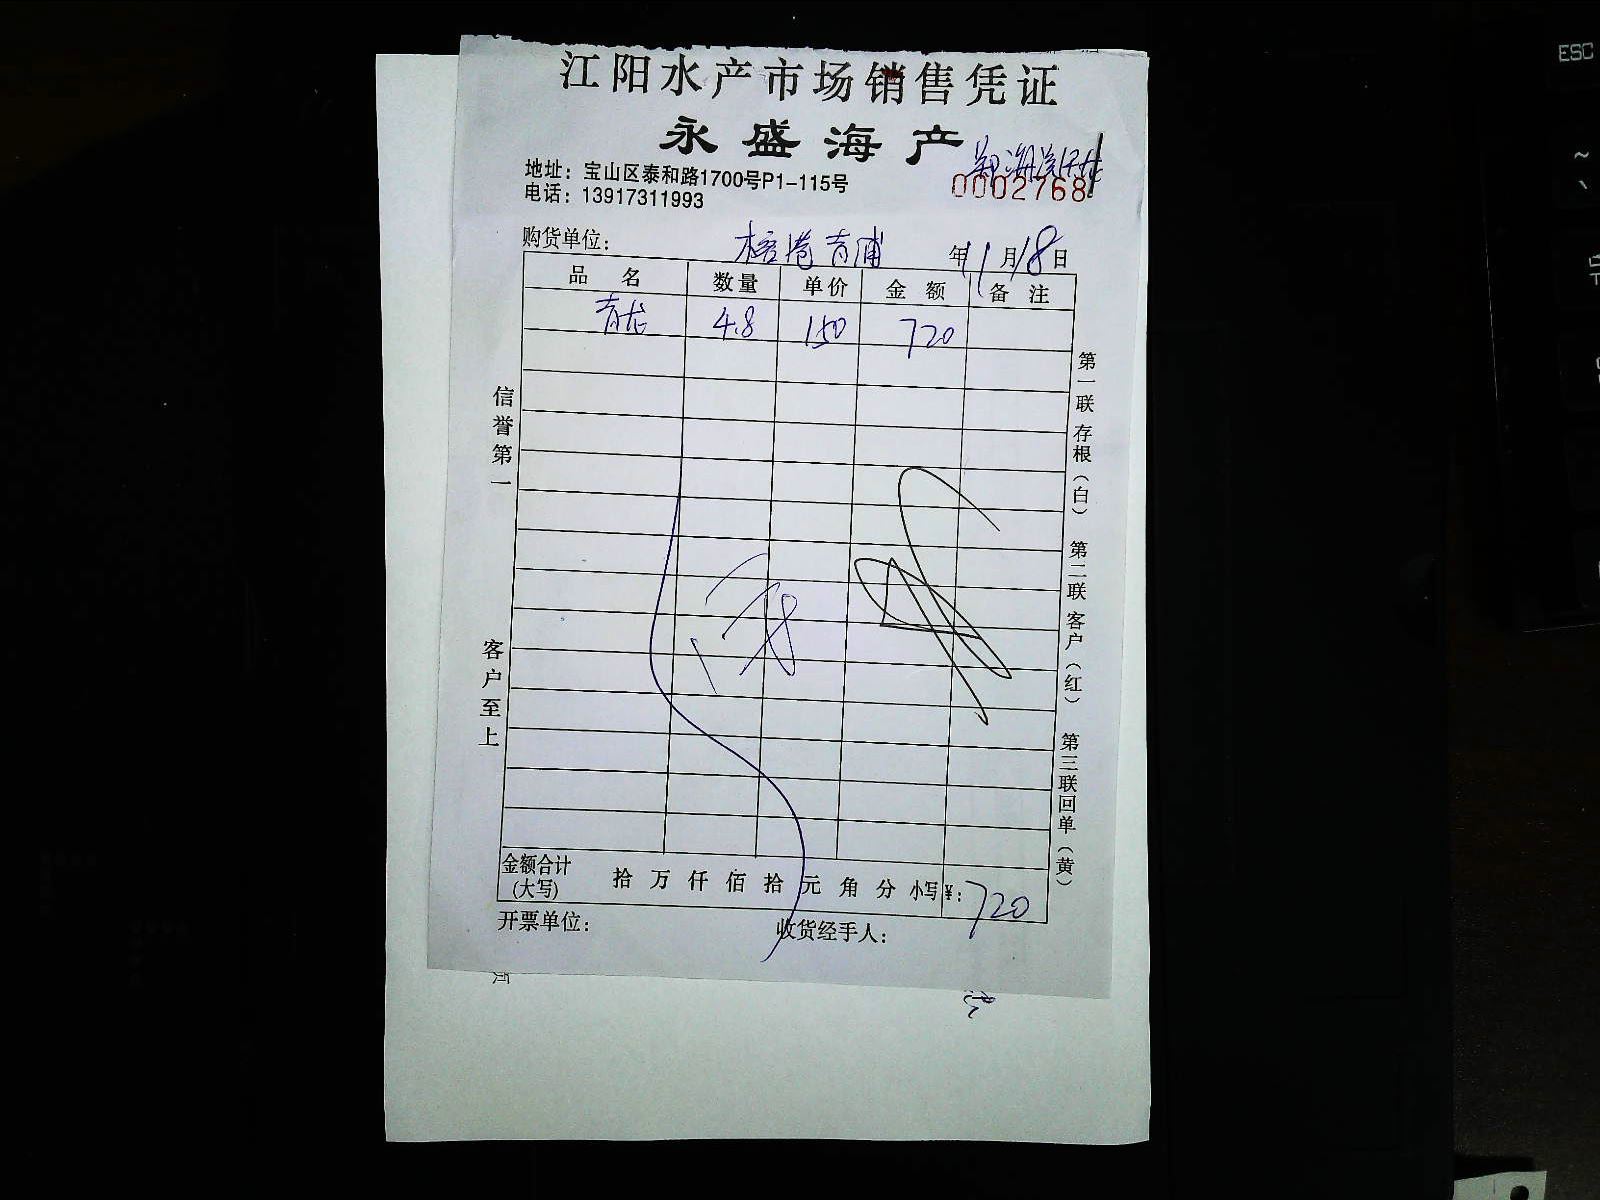 江阳水产市场销售凭证
永盛海产
地址：宝山区泰和路1700号P1-115号
电话：13917311993
0002768
购货单位： 榕港青浦 年 11月18日
品名 数量 单价 金额 备注
青龙 4.8 150 720
信誉第一
客户至上
第一联存根（白） 第二联客户（红） 第三联回单（黄）
金额合计（大写） 拾 万 仟 佰 拾 元 角 分 小写¥：720
开票单位： 收货经手人：
ESC